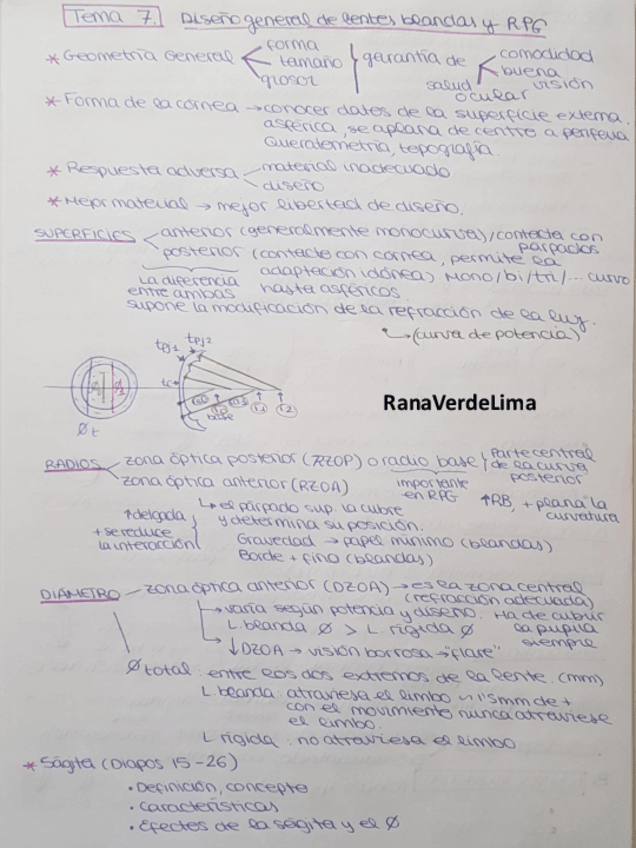 Tema 7. Diseño general de lentes blandas y RPG
* Geometría general forma
tamaño
grosor
garantía de comodidad
buena visión
salud ocular
* Forma de la córnea → conocer datos de la superficie externa.
asférica, se aplana de centro a periferia
Queratometría, topografía.
* Respuesta adversa material inadecuado
diseño
* Mejor material → mejor libertad de diseño.
SUPERFICIES anterior (generalmente monocurva)/contacta con párpados
posterior (contacto con córnea, permite la
adaptación idónea) Mono/bi/tri/... curvo
hasta asféricos.
La diferencia
entre ambas
supone la modificación de la refracción de la luz.
↳ (curva de potencia)
tpj1 tpj2
tc
base
r1 r2
Øt
RanaVerdeLima
RADIOS zona óptica posterior (RZOP) o radio base
Parte central
de la curva
posterior
zona óptica anterior (RZOA)
importante
en RPG
↑RB, + plana la
curvatura
↳ el párpado sup. la cubre
y determina su posición.
↑delgada
+ se reduce
la interacción
Gravedad → papel mínimo (blandas)
Borde + fino (blandas)
DIÁMETRO zona óptica anterior (DZOA) → es la zona central
(refracción adecuada)
→ varía según potencia y diseño. Ha de cubrir
la pupila
siempre
L. blanda Ø > L. rígida Ø
↓DZOA → visión borrosa → "flare"
Ø total: entre los dos extremos de la lente. (mm)
L. blanda: atraviesa el limbo ~ 1'5mm de +
con el movimiento nunca atraviese
el limbo.
L rígida: no atraviesa el limbo
* Ságita (Diapos 15-26)
• Definición, concepto
• Características
• Efectos de la ságita y el Ø